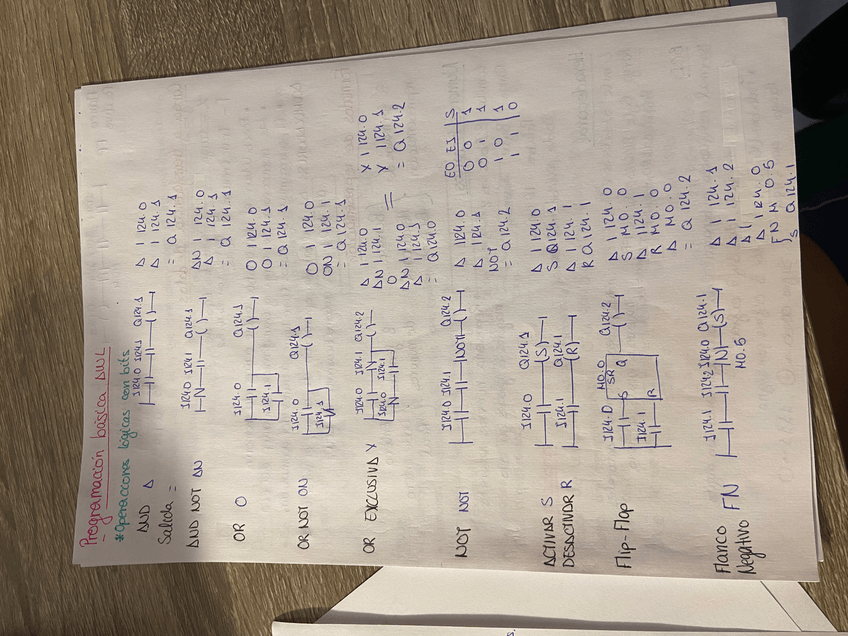 - Programación básica AWL
* Operaciones lógicas con bits
AND A
Salida =
I124.0 I124.1 Q124.1
A I 124.0
A I 124.1
= Q 124.1
AND NOT AN
I124.0 I124.1 Q124.1
N
AN I 124.0
A I 124.1
= Q 124.1
OR O
I124.0 Q124.1
I124.1
O I 124.0
O I 124.1
= Q 124.1
OR NOT ON
I124.0 Q124.1
I124.1
N
O I 124.0
ON I 124.1
= Q124.1
OR EXCLUSIVA X
I124.0 I124.1 Q124.2
N
I124.0 I124.1
N
A I 124.0
AN I 124.1
O
AN I 124.0
A I 124.1
= Q124.0
=
X I 124.0
X I 124.1
= Q 124.2
NOT NOT
I124.0 I124.1 Q124.2
NOT
A I 124.0
A I 124.1
NOT
= Q 124.2
E0 E1 S
0 0 1
0 1 1
1 0 1
1 1 0
ACTIVAR S
DESACTIVAR R
I124.0 Q124.1
(S)
I124.1 Q124.1
(R)
A I 124.0
S Q124.1
A I 124.1
R Q124.1
Flip-Flop
I124.0 M0.0 Q124.2
SR
S Q
I124.1
R
A I 124.0
S M0.0
A I124.1
R M0.0
A M0.0
= Q 124.2
Flanco FN
Negativo
I124.1 I124.2 I124.0 Q124.1
N (S)
M0.5
A I 124.1
A I 124.2
A (
A I 124.0
FN M 0.5
)
S Q124.1